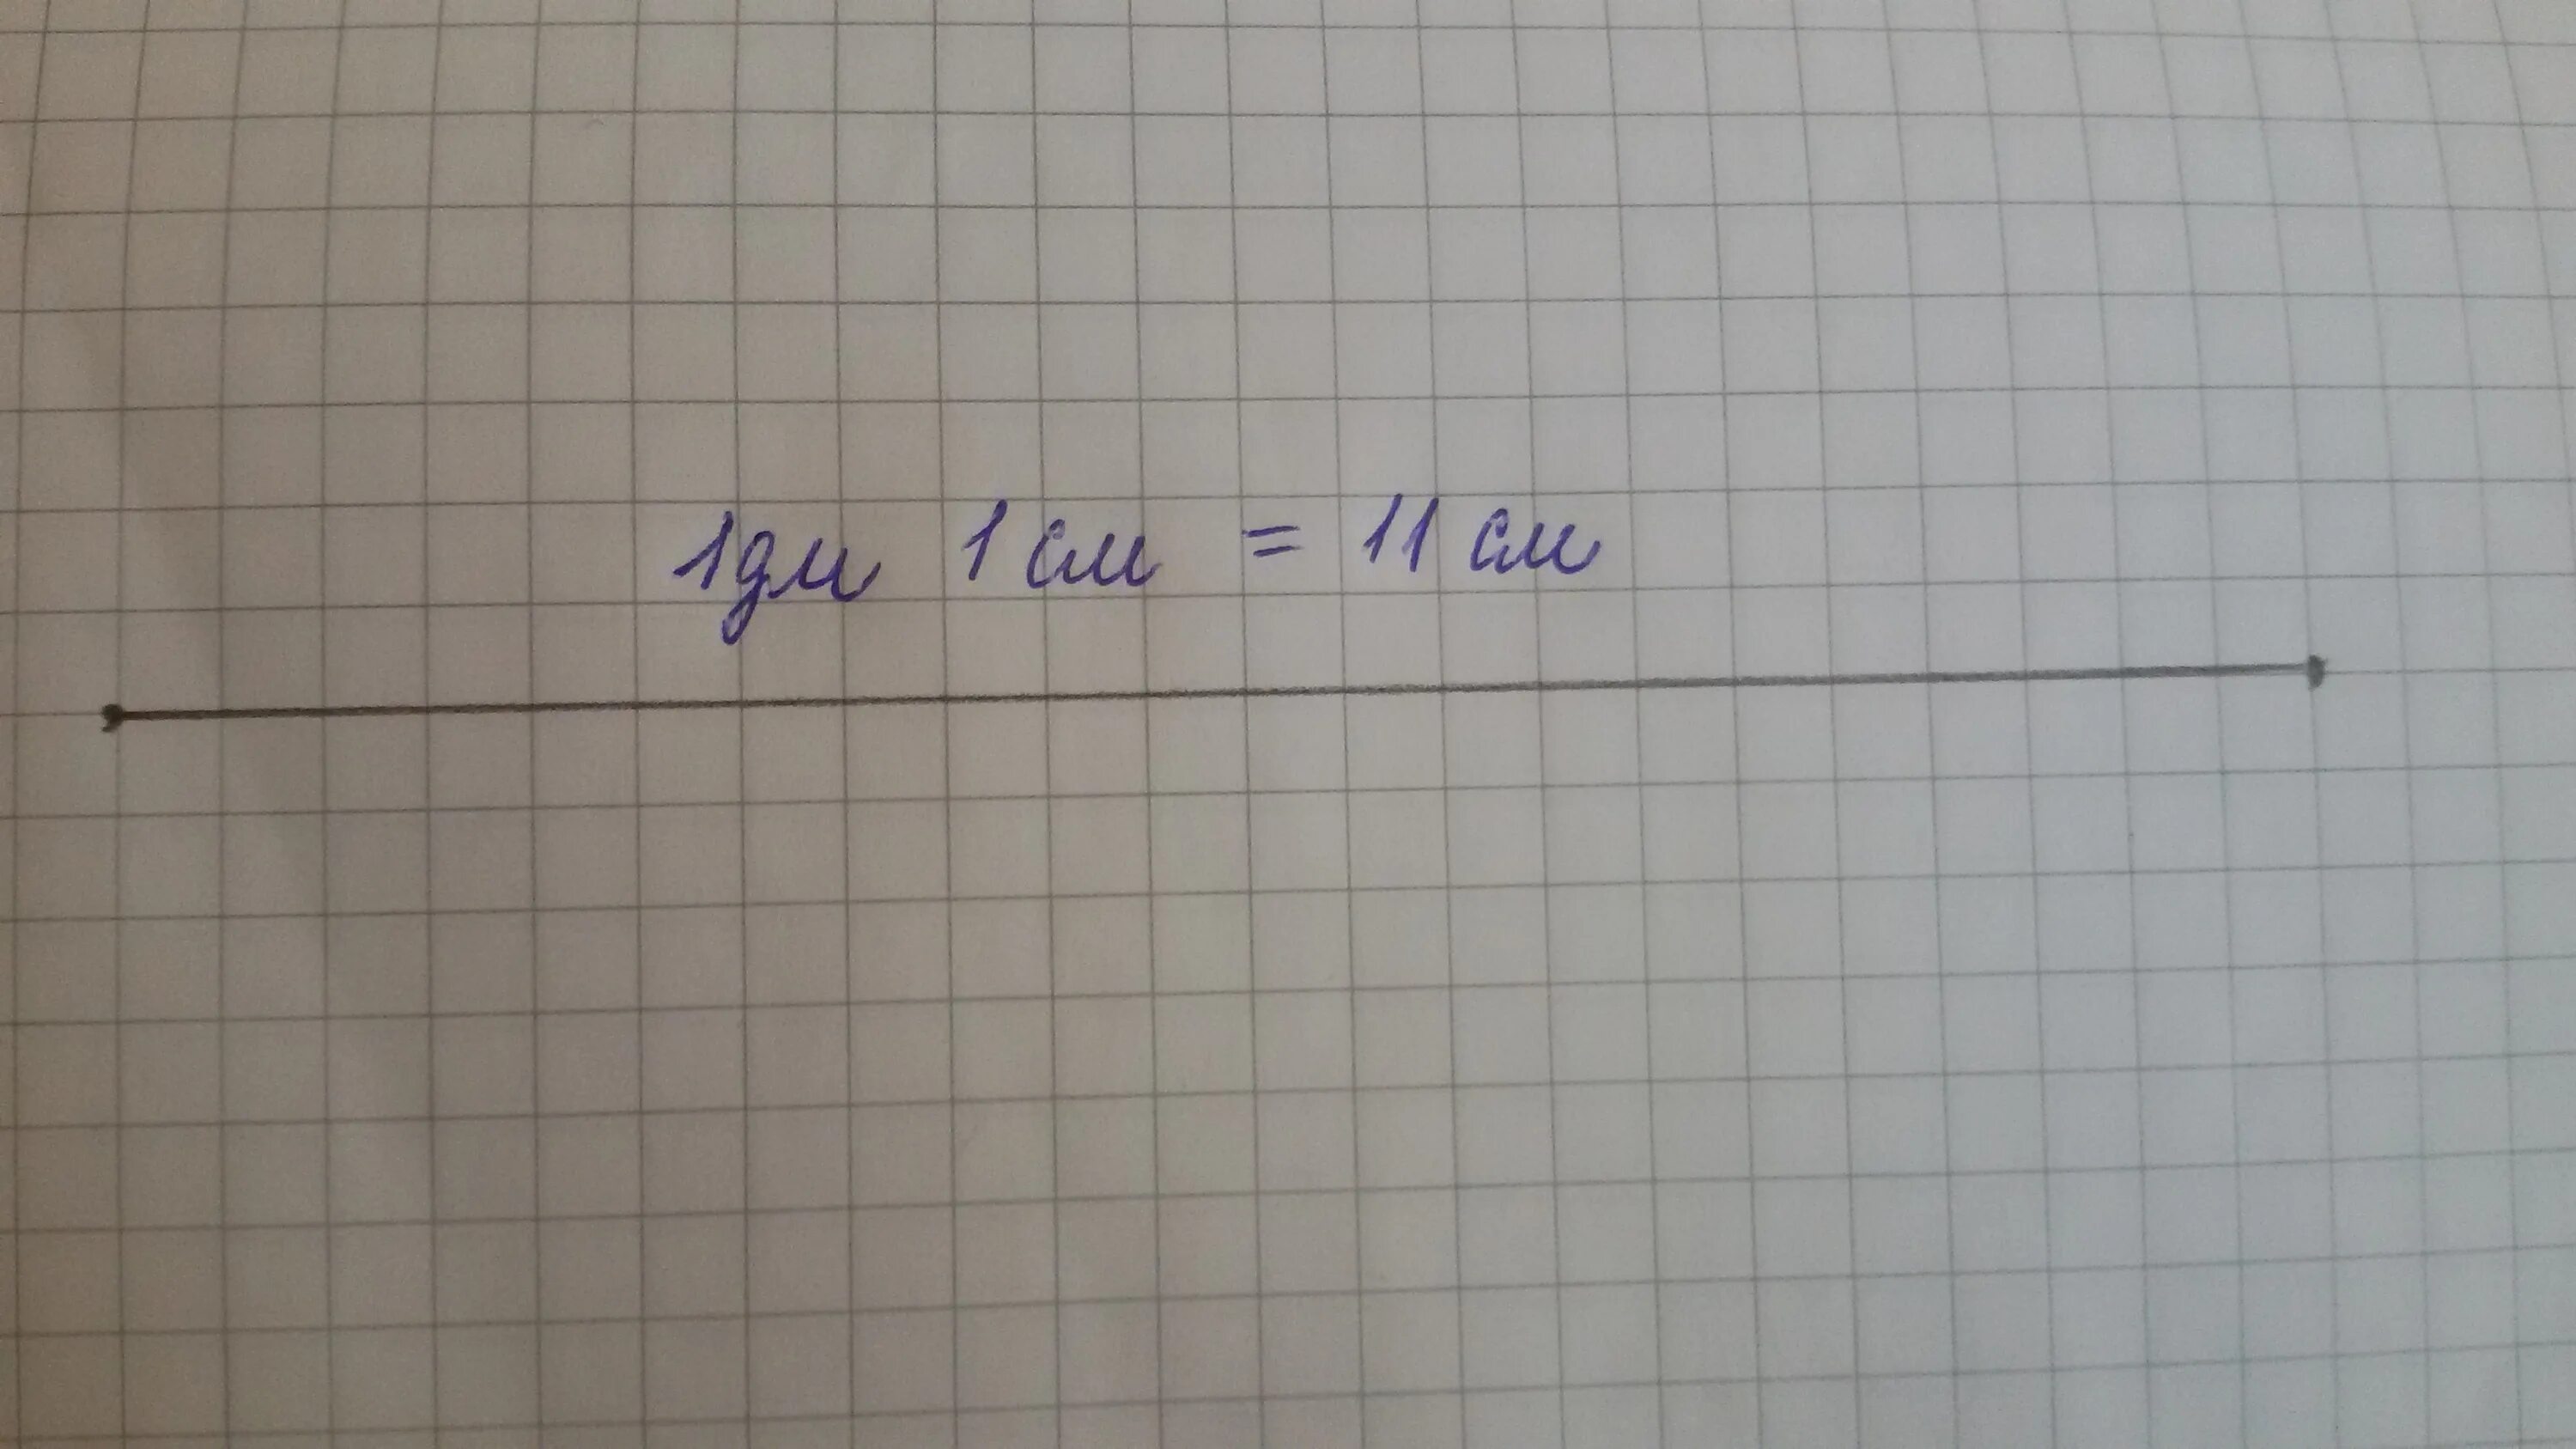 1дм 1 см = 11 см